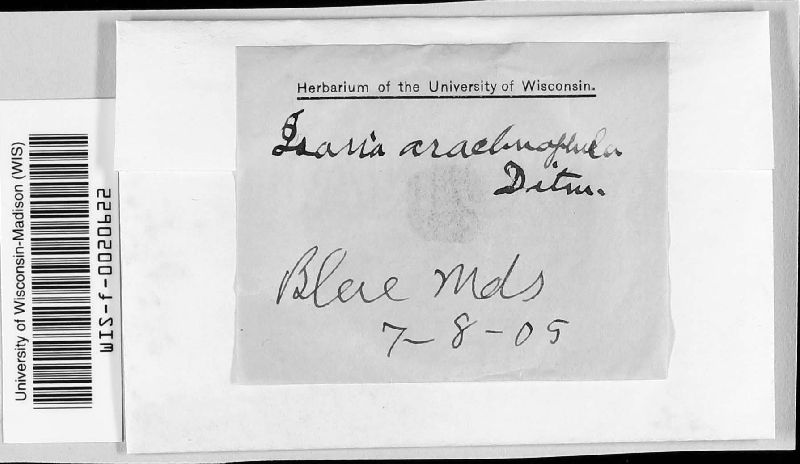 Herbarium of the University of Wisconsin.
Isaria arachnophila
Ditm.
Blue Mds
7-8-05
University of Wisconsin-Madison (WIS)
WIS-f-0020622